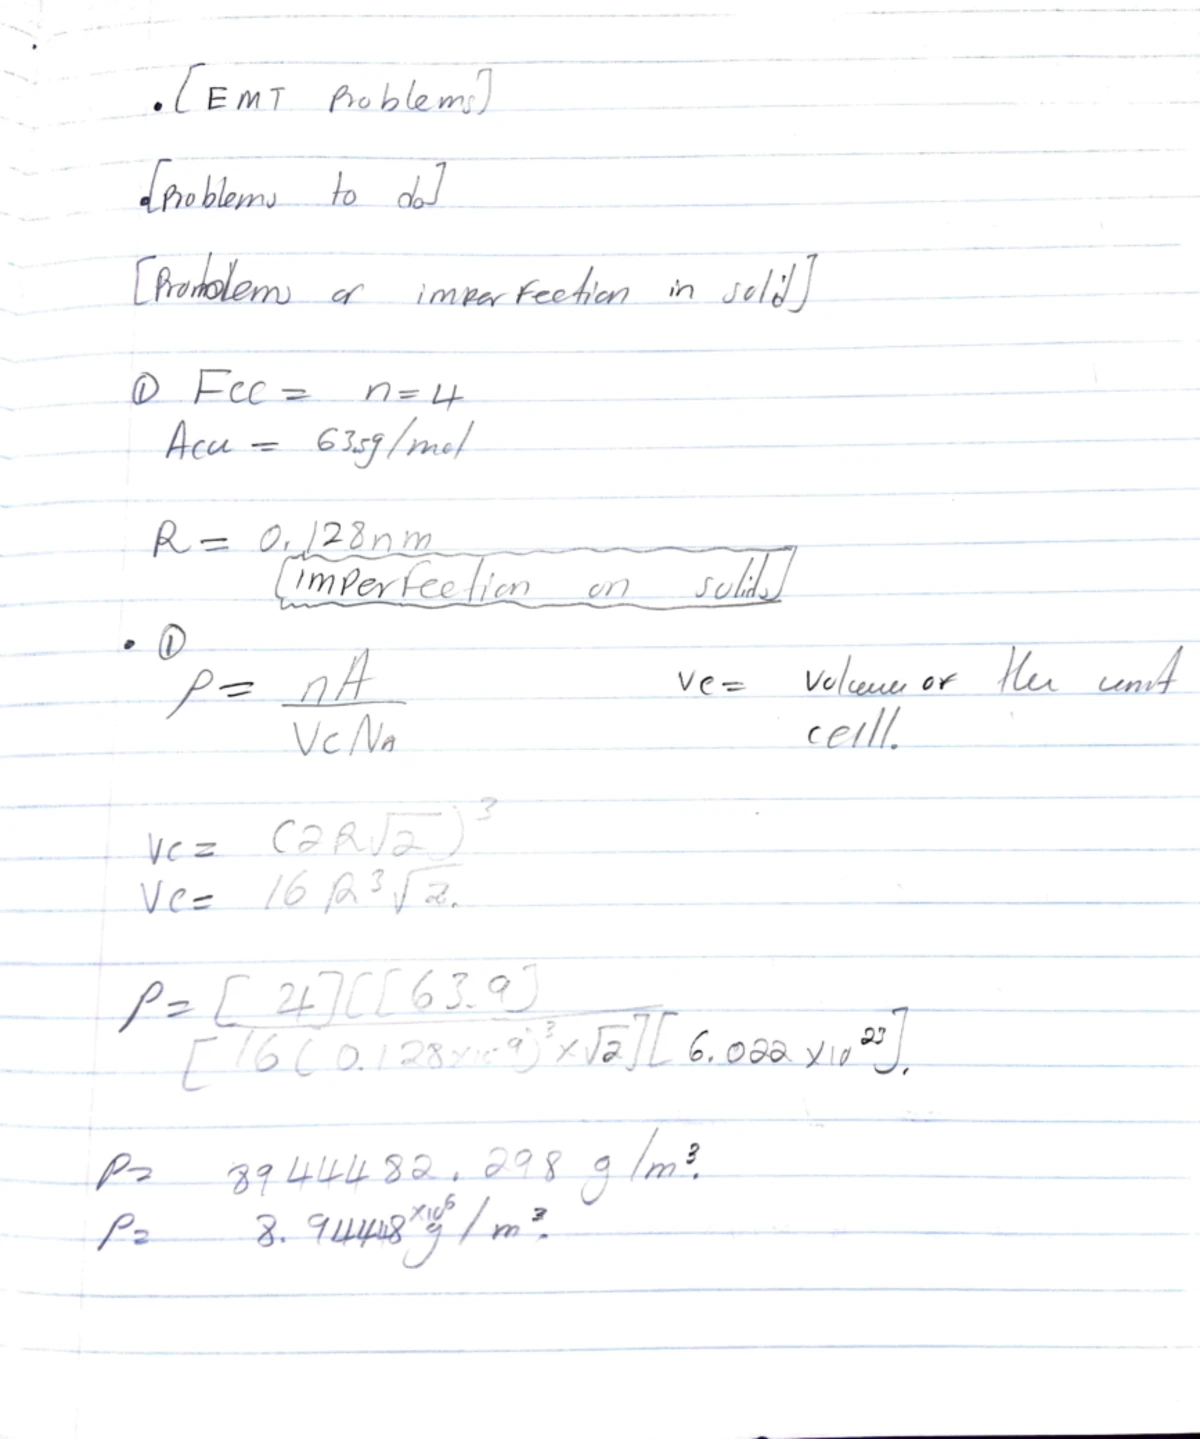 .[EMT Problems]
.[Problems to do]
[Promblem or imperfection in solid]
① FCC = n=4
Acu = 63.5g/mol
R = 0.128nm
[imperfection on solids]
• ①
ρ = nA
VcNA
Vc = volume of the unit
cell.
Vc = (2R√2)³
Vc = 16R³√2.
ρ = [4][[63.9]
[16(0.128x10⁻⁹)³x√2][6.022x10²³].
ρ= 8944482.298 g/m³.
ρ= 8.94448x10⁶g/m³.